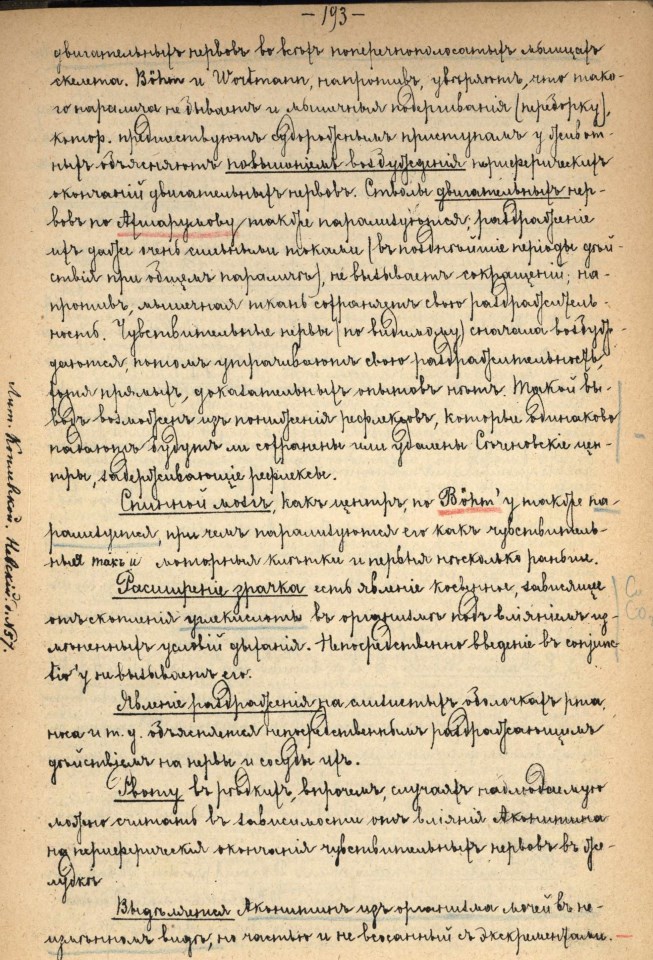 —193—
двигательныхъ нервовъ во всѣхъ поперечнополосатыхъ мышцахъ
скелета. Böhm и Wortmann, напротивъ, увѣряютъ, что тако-
го паралича не бываетъ и мышечныя подергиванія (передорку),
котор. предшествуютъ судорожнымъ приступамъ у живот-
ныхъ объясняютъ повышеніемъ возбужденія периферическихъ
окончаній двигательныхъ нервовъ. Стволы двигательныхъ нер-
вовъ по Ашарумову также парализуются; раздраженіе
ихъ даже очень сильными токами (въ позднѣйшіе періоды дѣй-
ствія при общемъ параличѣ), не вызываетъ сокращеній; на-
противъ, мышечная ткань сохраняетъ свою раздражитель-
ность. Чувствительные нервы (по видимому) сначала возбуж-
даются, потомъ утрачиваютъ свою раздражительность,
хотя прямыхъ, доказательныхъ опытовъ нѣтъ. Такой вы-
водъ возможенъ изъ пониженія рефлексовъ, которые одинаково
падаютъ будутъ ли сохранены или удалены Сѣченовскіе цен-
тры, задерживающіе рефлексы.
Спинной мозгъ, какъ центръ, по Böhm'у также па-
рализуется, при чемъ парализуются его какъ чувствитель-
ныя такъ и моторныя клѣтки и первыя нѣсколько раньше.
Расширеніе зрачка есть явленіе косвенное, зависящее
отъ скопленія углекислоты въ организмѣ подъ вліяніемъ из-
мѣненныхъ условій дыханія. Непосредственно введеніе въ conjunc-
tio'у не вызываетъ его.
Явленіе раздраженія на слизистыхъ оболочкахъ рта,
носа и т. д. объясняется непосредственнымъ раздражающимъ
дѣйствіемъ на нервы и сосуды ихъ.
Рвоту въ рѣдкихъ, впрочемъ, случаяхъ наблюдаемую
можно считать въ зависимости отъ вліянія Аконитина
на периферическія окончанія чувствительныхъ нервовъ въ же-
лудкѣ
Выдѣляется Аконитинъ изъ организма мочей въ не-
измѣнномъ видѣ, но частью и не всосанный съ экскрементами.
Лит. Невскій д. №57
Co
Co